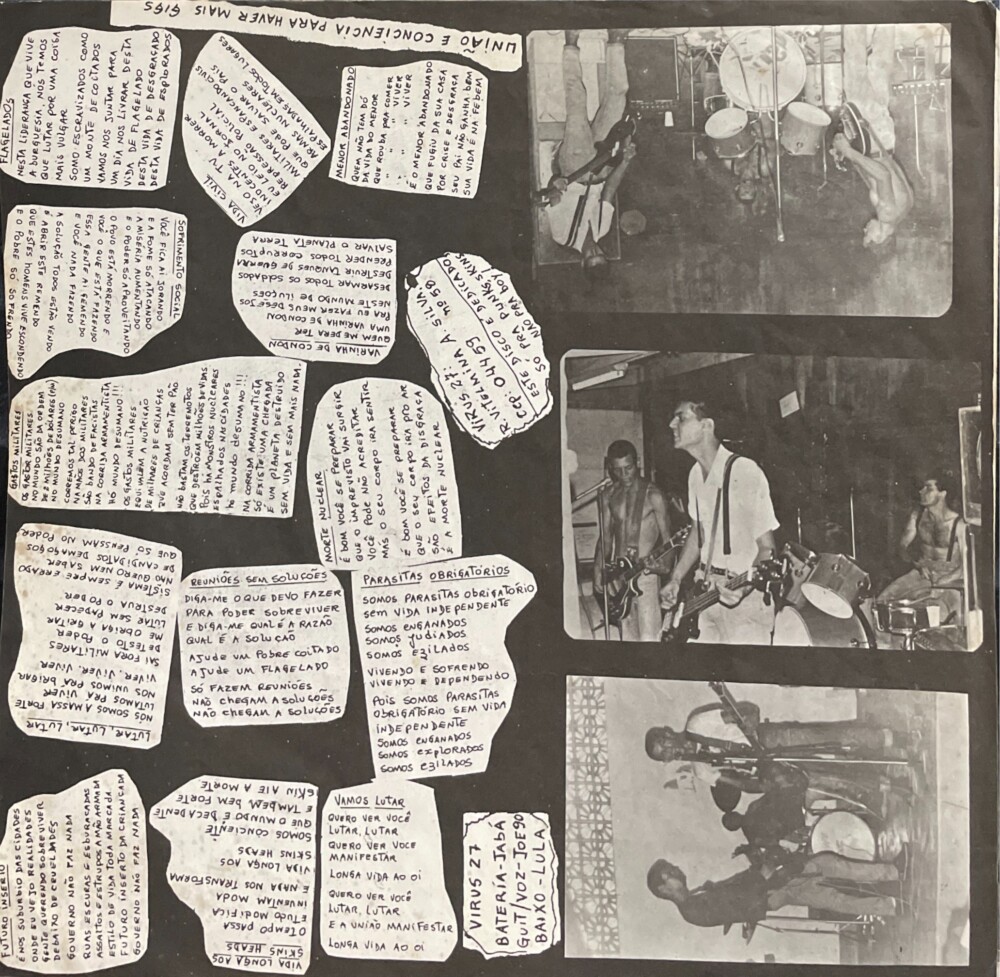 UNIÃO E CONCIÊNCIA PARA HAVER MAIS GIGS
FLAGELADOS
NESTA LIDERANÇA QUE VIVE
A BURGUESIA, NOS TEMOS
QUE LUTAR POR UMA COISA
MAIS VULGAR
SOMO ESCRAVIZADOS COMO
UM MONTE DE COITADOS
VAMOS NOS JUNTAR PARA
UM DIA NOS LIVRAR DESTA
VIDA DE FLAGELADO
DESTA VIDA DE DESGRAÇADO
DESTA VIDA DE ESPLORADOS
VIDA CIVIL
VEJO NA TV
INOCENTES A MORRER
EU LEIO NO JORNAL
REPRESSÃO POLICIAL
MILITARES E SEGURANÇAS CIVIS
QUE PODE SALVAR O PAIS
ARMAS NUCLEARES
ESPALHADAS EM TODOS LUGARES
MENOR ABANDONADO
QUEM NÃO TEM DÓ
DA VIDA DO MENOR
QUE ROUBA PRA COMER
" " " VIVER
" " " VIVER
É O MENOR ABANDONADO
QUE FUGIU DA SUA CASA
POR CRISE E DESGRAÇA
SEU PAI NÃO GANHA BEM
SUA VIDA É NA FEBEM
SOFRIMENTO SOCIAL
VOCÊ FICA AI JORANDO
E A FOME SÓ ATACANDO
E O PODER SÓ APROVEITANDO
A MISÉRIA AUMENTANDO
O POVO ESTÁ MORRENDO E
VOCÊ O QUE ESTÁ FAZENDO
ESSA GENTE AI GEMENDO
E VOCÊ NADA FAZENDO
A SOLUÇÃO TODOS ESTÃO VENDO
É ABRIR ESTE REMENDO
QUE ESTES HOMENS VIVE ESCONDENDO
E O POBRE SÓ SOFRENDO
VARINHA DE CONDON
QUEM ME DERA TER
UMA VARINHA DE CONDON
PRA EU FAZER MEUS DESEJOS
NESTE MUNDO DE ILUÇÕES
DESARMAR TODOS OS SOLDADOS
DESTRUIR TANQUES DE GUERRA
PRENDER TODOS CORRUPTOS
SALVAR O PLANETA TERRA
VIRUS 27:
R. VITGEMINA A. SILVA nº 5B
CEP. 04459
ESTE DISCO É DEDICADO
SÓ PRA PUNK, SKINS
NÃO PARA BOY!
GASTOS MILITARES
OS GASTOR MILITARES
NO MUNDO SÃO DA ORDEM
DE 2 MILHÕES DE DÓLARES
NO MUNDO DESUMANO
CORREMOS TAL PERIGO
NA MÃOS DOS MILITARES
SÃO BANDO DE FACISTAS
NA CORRIDA ARMAMENTISTA
HÓ MUNDO DESUMANO!!!
OS GASTOS MILITARES
EQUIVALEM A NUTRIÇÃO
DE MILHARES DE CRIANÇAS
QUE ACORDAM SEM TER PÃO
NÃO BASTAM OS TERREMOTOS
QUE DESTROEM MILHÕES DE VIDAS
POIS HÁ MONSTROS NUCLEARES
ESPALHADOS NAS CIDADES
hó mundo desumano!!!
NA CORRIDA ARMAMENTISTA
SÓ EXISTE UMA CHEGADA
É UM PLANETA DESTRUIDO
SEM VIDA E SEM MAIS NADA.
MORTE NUCLEAR
É BOM VOCÊ SE PREPARAR
QUE O IMPREVISTO VAI SURGIR
VOCÊ PODE NÃO ACREDITAR
MAS O SEU CORPO IRÁ SENTIR
É BOM VOCÊ SE PREPARAR
QUE O SEU CORPO IRÁ PRO AR
SÃO EFEITOS DA DISGRAÇA
É A MORTE NUCLEAR
LUTAR, LUTAR, LUTAR
NÓS SOMOS A MASSA FORTE
LUTAMOS PRA VIVER
NOS UNIMOS PRA BRIGAR
VIVER, VIVER, VIVER
SAI FORA MILITARES
DETESTO O PODER
ME OBRIGA A GRITAR
LUTAR SEM PADECER
DESTRUA O PODER
SISTEMA É SEMPRE ERRADO
NÃO QUERO NEM SABER
DE CANDIDATOS DEMAGOGOS
QUE SÓ PENSSAM NO PODER
REUNIÕES SEM SOLUCÕES
DIGA-ME O QUE DEVO FAZER
PARA PODER SOBREVIVER
E DIGA-ME QUAL É A RAZÃO
QUAL É A SOLUCÃO
AJUDE UM POBRE COITADO
AJUDE UM FLAGELADO
SÓ FAZEM REUNIÕES
NÃO CHEGAM A SOLUÇÕES
NÃO CHEGAM A SOLUÇÕES
PARASITAS OBRIGATÓRIOS
SOMOS PARASITAS OBRIGATÓRIO
SEM VIDA INDEPENDENTE
SOMOS ENGANADOS
SOMOS JUDIADOS
SOMOS EZILADOS
VIVENDO E SOFRENDO
VIVENDO E DEPENDENDO
POIS SOMOS PARASITAS
OBRIGATÓRIO SEM VIDA
INDEPENDENTE
SOMOS ENGANADOS
SOMOS EXPLORADOS
SOMOS EZILADOS
FUTURO INSERTO
É NOS SUBURBIO DAS CIDADES
ONDE EU VEJO REALIDADES
GENTE QUERENDO SOBREVIVER
DEBAIXO DE CRUELDADES
GOVERNO NÃO FAZ NADA
RUAS ESCURAS E ESBURACADAS
ASSALTOS E ESTRUPOS A MÃO ARMADA
ESTILO DE VIDA TODA MARCADA
FUTURO INSERTO DA CRIANÇADA
GOVERNO NÃO FAZ NADA
VIDA LONGA AOS
SKINS HEADS
O TEMPO PASSA
E TUDO MODIFICA
INVENTAM MODA
E NADA NOS TRANSFORMA
VIDA LONGA AOS
SKINS HEADS
SOMOS CONCIENTE
QUE O MUNDO É DECADENTE
E TAMBEM BEM FORTE
SKIN ATE A MORTE
VAMOS LUTAR
QUERO VER VOCÊ
LUTAR, LUTAR
QUERO VER VOCE
MANIFESTAR
LONGA VIDA AO OI
QUERO VER VOCÊ
LUTAR, LUTAR
E A UNIÃO MANIFESTAR
LONGA VIDA AO OI
VIRUS 27
BATERIA-JABA
GUIT/VOZ-JOE90
BAIXO-LULA